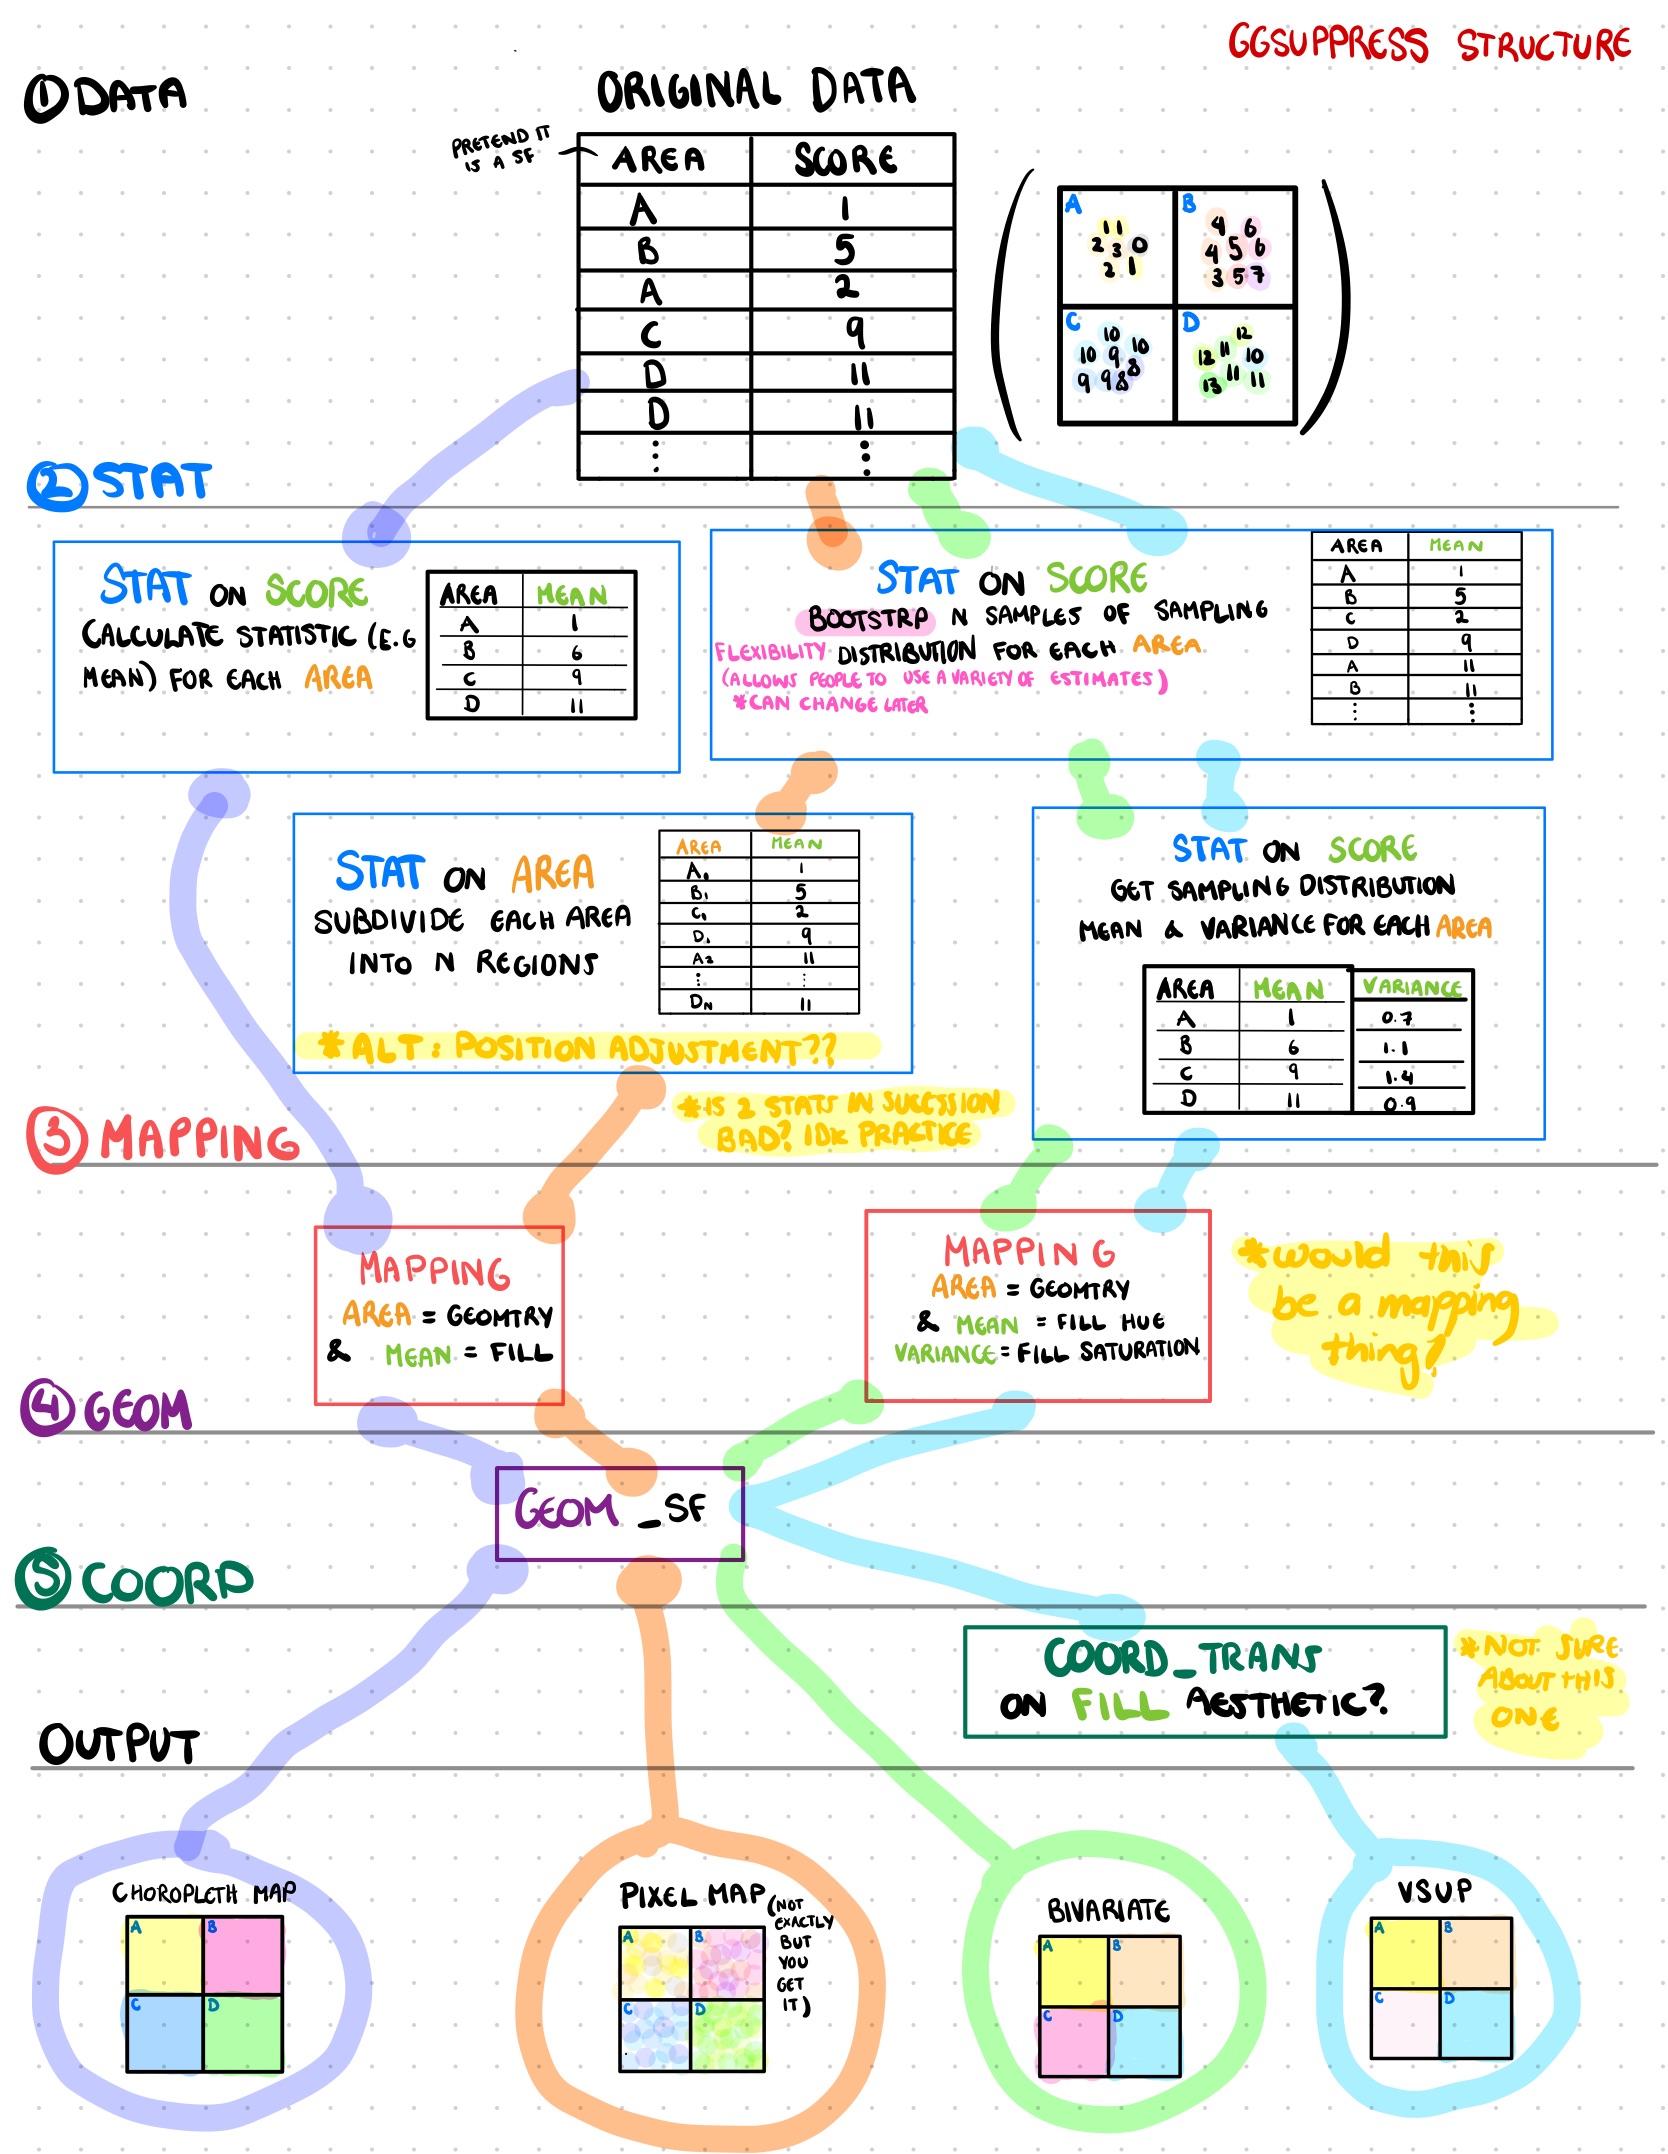 GGSUPPRESS STRUCTURE
① DATA
ORIGINAL DATA
PRETEND IT
IS A SF
AREA SCORE
A 1
B 5
A 2
C 9
D 11
D 11
⋮ ⋮
A
1 1
2 3 0
2 1
B
4 6
4 5 6
3 5 7
C
10
10 9 10
9 9 8 8
D
12
12 11 10
13 11 11
② STAT
STAT ON SCORE
CALCULATE STATISTIC (E.G
MEAN) FOR EACH AREA
AREA MEAN
A 1
B 6
C 9
D 11
STAT ON SCORE
BOOTSTRP N SAMPLES OF SAMPLING
FLEXIBILITY DISTRIBUTION FOR EACH AREA
(ALLOWS PEOPLE TO USE A VARIETY OF ESTIMATES)
*CAN CHANGE LATER
AREA MEAN
A 1
B 5
C 2
D 9
A 11
B 11
⋮ ⋮
STAT ON AREA
SUBDIVIDE EACH AREA
INTO N REGIONS
AREA MEAN
A₁ 1
B₁ 5
C₁ 2
D₁ 9
A₂ 11
⋮ ⋮
DN 11
*ALT: POSITION ADJUSTMENT??
STAT ON SCORE
GET SAMPLING DISTRIBUTION
MEAN & VARIANCE FOR EACH AREA
AREA MEAN VARIANCE
A 1 0.7
B 6 1.1
C 9 1.4
D 11 0.9
*IS 2 STATS IN SUCESSION
BAD? IDK PRACTICE
③ MAPPING
MAPPING
AREA = GEOMTRY
& MEAN = FILL
MAPPING
AREA = GEOMTRY
& MEAN = FILL HUE
VARIANCE = FILL SATURATION
*would this
be a mapping
thing?
④ GEOM
GEOM_SF
⑤ COORD
COORD_TRANS
ON FILL AESTHETIC?
*NOT SURE
ABOUT THIS
ONE
OUTPUT
CHOROPLETH MAP
A B
C D
PIXEL MAP (NOT
EXACTLY
BUT
YOU
GET
IT)
A B
C D
BIVARIATE
A B
C D
VSUP
A B
C D